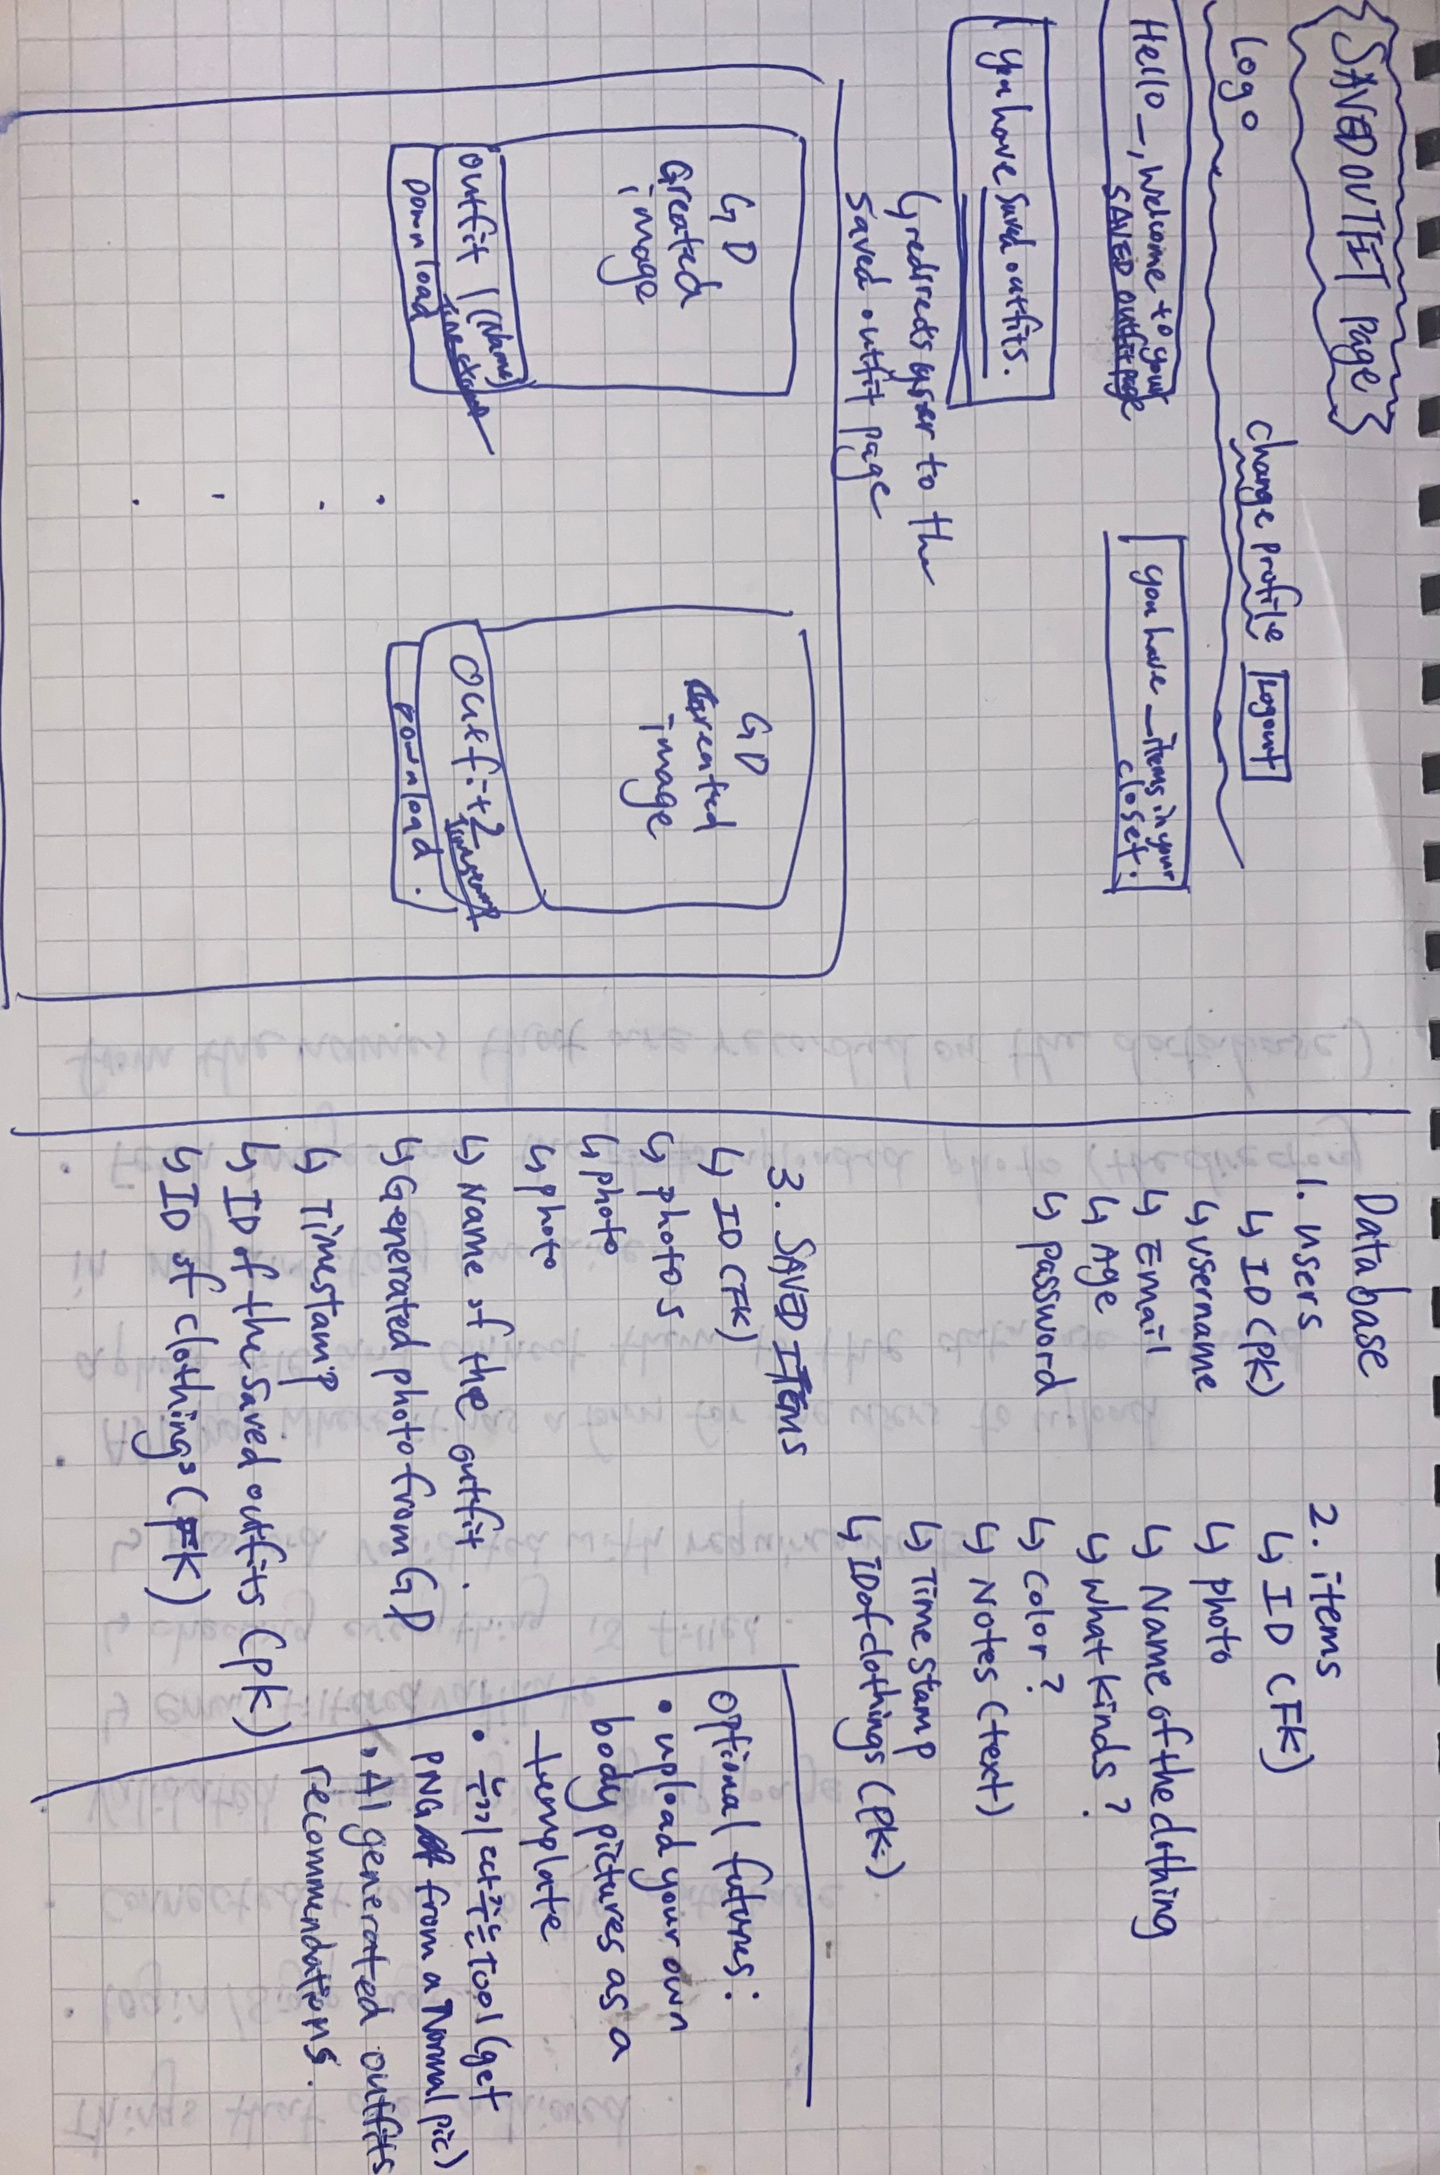 SAVED OUTFIT page
Logo
change profile
Logout
Hello _, welcome to your
SAVED outfit page
you have _ items in your
closet.
you have saved outfits.
↳ redirects user to the
saved outfit page
GD
Created
image
outfit 1 (Name)
Download
GD
Created
image
outfit 2
Download.
Database
1. users
↳ ID (PK)
↳ username
↳ Email
↳ Age
↳ password
2. items
↳ ID (FK)
↳ photo
↳ Name of the clothing
↳ what kinds?
↳ color?
↳ Notes (text)
↳ Time stamp
↳ ID of clothings (PK)
3. SAVED ITEMS
↳ ID (FK)
↳ photos
↳ photo
↳ photo
↳ Name of the outfit.
↳ Generated photo from GD
↳ Timestamp
↳ ID of the saved outfits (PK)
↳ ID of clothings (FK)
optional futures:
• upload your own
body pictures as a
template
• 누끼 따는 Tool (get
PNG from a Normal pic)
• AI generated outfits
recommendations.